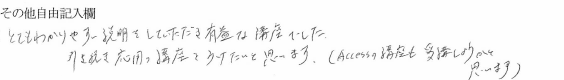 その他自由記入欄
とてもわかりやすい説明をしていただき有益な講座でした。
引き続き応用の講座もうけたいと思います。(Accessの講座も受講しようかと
思います)